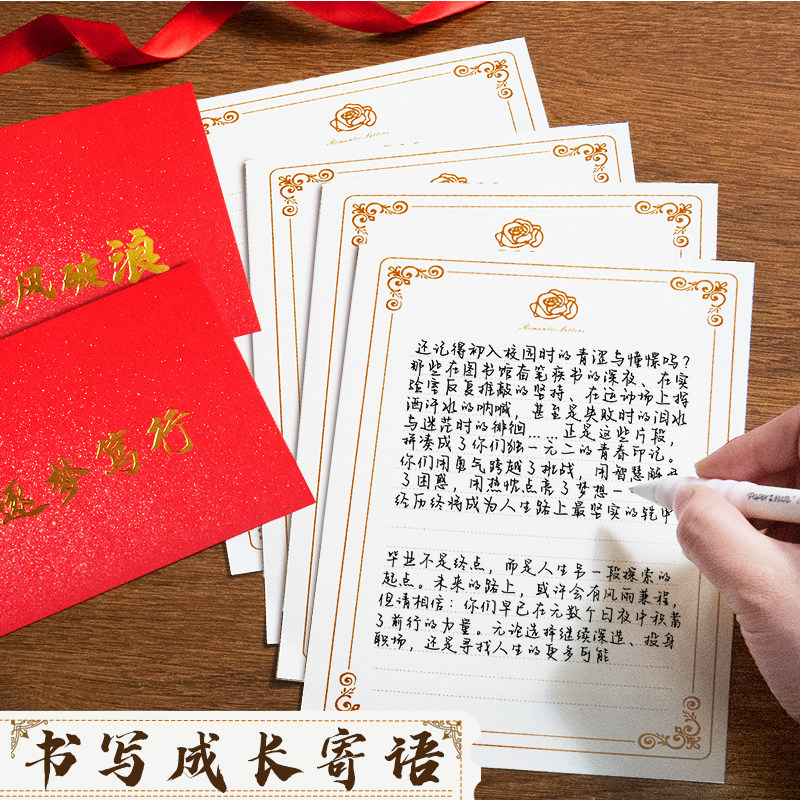 风破浪
逐梦笃行
Romantic Letters
Romantic Letters
还记得初入校园时的青涩与憧憬吗?
那些在图书馆奋笔疾书的深夜、在实
验室反复推敲的坚持、在运动场上挥
洒汗水的呐喊,甚至是失败时的泪水
与迷茫时的徘徊……正是这些片段,
拼凑成了你们独一无二的青春印记。
你们用勇气跨越了挑战,用智慧解
了困惑,用热忱点亮了梦想一
经历终将成为人生路上最坚实的铠甲
毕业不是终点,而是人生另一段探索的
起点。未来的路上,或许会有风雨兼程,
但请相信:你们早已在无数个日夜中积蓄
了前行的力量。无论选择继续深造、投身
职场,还是寻找人生的更多可能
书写成长寄语